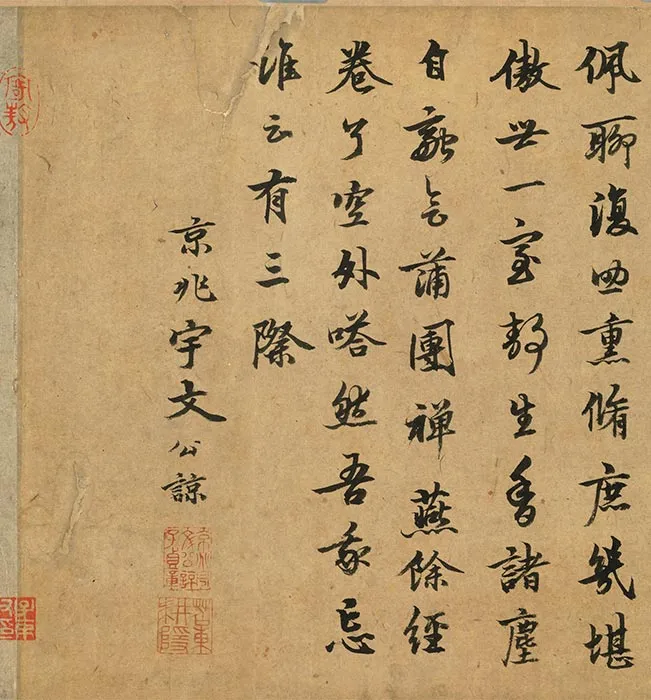 佩聊復熏脩庶幾堪
傲世一室静生香諸塵
自融會蒲團禪燕餘經
卷了空外嗒然吾我忘
誰云有三際
京兆宇文公諒